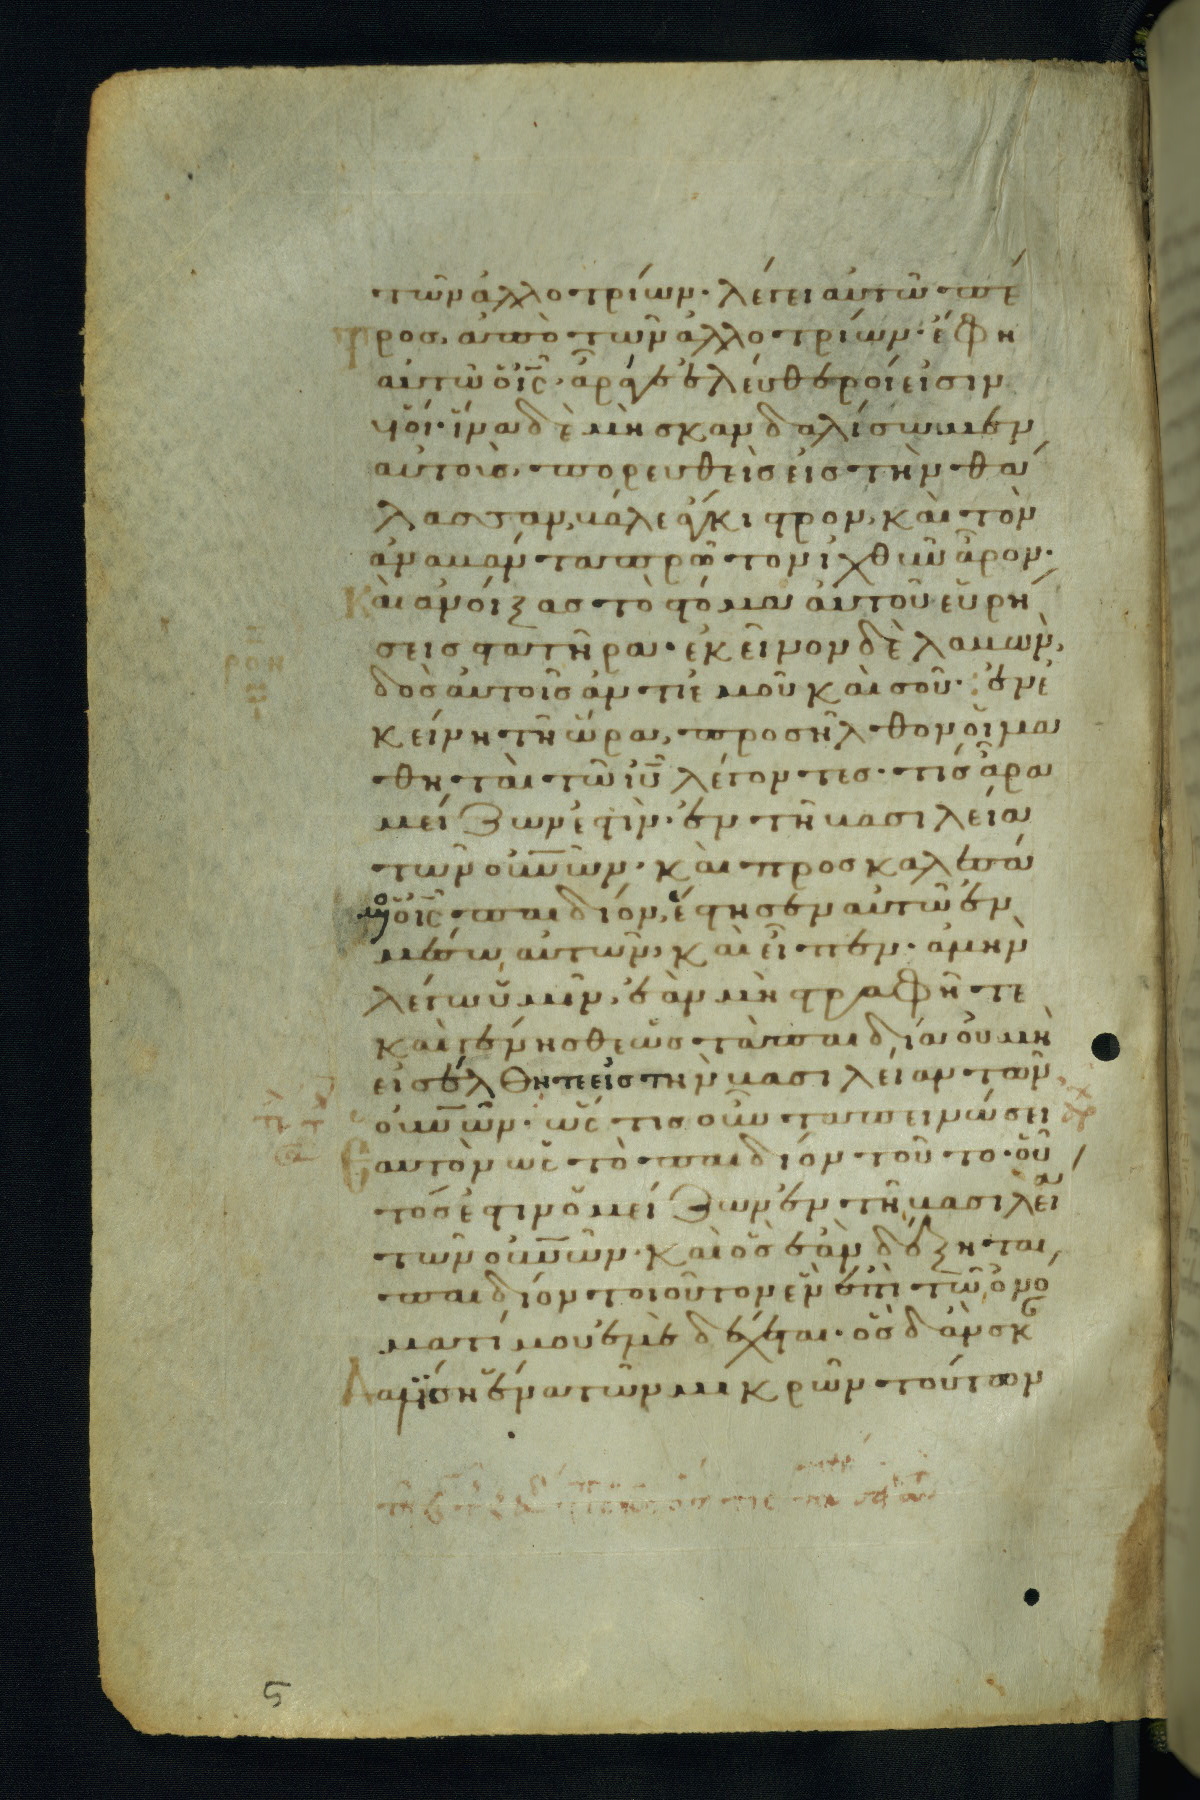 τῶν ἀλλοτρίων· λέγει αὐτῶ πέ
τρος, ἀπὸ τῶν ἀλλοτρίων· ἔφη
αὐτῶ ὁ ἰς̅· ἄρά γε ἐλεύθεροί εἰσιν
υἱοί· ἵνα δὲ μὴ σκανδαλίσωμεν
αὐτούς, πορευθεὶς εἰς τὴν θά
λασσαν, βάλε ἄγκιστρον, καὶ τὸν
ἀναβάντα πρῶτον ἰχθὺν ἆρον·
Καὶ ἀνοίξας τὸ στόμα αὐτοῦ εὑρή
σεις στατῆρα· ἐκεῖνον δὲ λαβὼν,
δὸς αὐτοῖς ἀντὶ ἐμοῦ καὶ σοῦ· ἐν ἐ
κείνη τῆ ὥρα, προσῆλθον οἱ μα
θηταὶ τῶ ἰυ̅ λέγοντες· τίς ἄρα
μείζων ἐστὶν· ἐν τῆ βασιλεία
τῶν οὐν̅ων· καὶ προσκαλεσά
μνο ὁ ἰς̅ παιδίον, ἔστησεν αὐτῶ ἐν
μέσω αὐτῶν, καὶ εἶπεν· ἀμὴν
λέγω ὑμῖν, ἐὰν μὴ στραφῆτε
καὶ γένησθε ὡς τὰ παιδία οὐ μὴ
εἰσέλθητε εἰς τὴν βασιλείαν τῶν
οὐν̅ων· ὅς τις οὖν ταπεινώσει
Ἑαυτὸν ὡς τὸ παιδίον τοῦτο· οὗ
τός ἐστιν ὁ μείζων ἐν τῆ βασιλεία
τῶν οὐν̅ων· καὶ ὃς ἐὰν δέξηται,
παιδίον τοιοῦτον ἓν ἐπὶ τῶ ὀνό
ματί μου ἐμὲ δέχεται· ὃς δ ἂν σκ
Δαλίση ἕνα τῶν μικρῶν τούτων
5